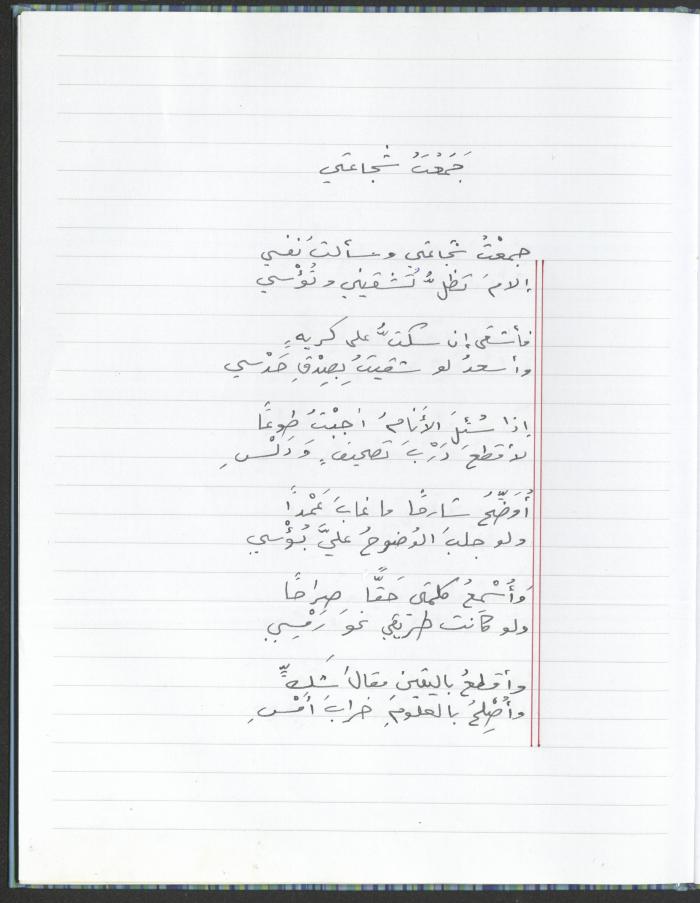 جَمَعْتُ شجاعتي
جمعْتُ شجاعتي وسألت نَفسي
إلامَ تظلُّ تُشقيني وتُؤْسي
فأشقى إن سكتُّ على كريهٍ
وأسعدُ لو شقيتُ بِصِدْقِ حَدْسي
إذا سُئلَ الأَنامُ أجبْتُ طوعًا
لأقطعَ دَرْبَ تصحيفٍ وَدَلْسِ
أُوَضِّحُ شارحًا ما غابَ عَمْدًا
ولو جلبَ الوُضوحُ عليَّ بُؤْسي
وَأُسْمِعُ كلمتي حَقًّا صِراحًا
ولو كانت طريقي نحوَ رَمْسِي
وأقطعُ باليقين مقالَ شَكٍّ
وأُصْلِحُ بالعلومِ خرابَ أمْسِ